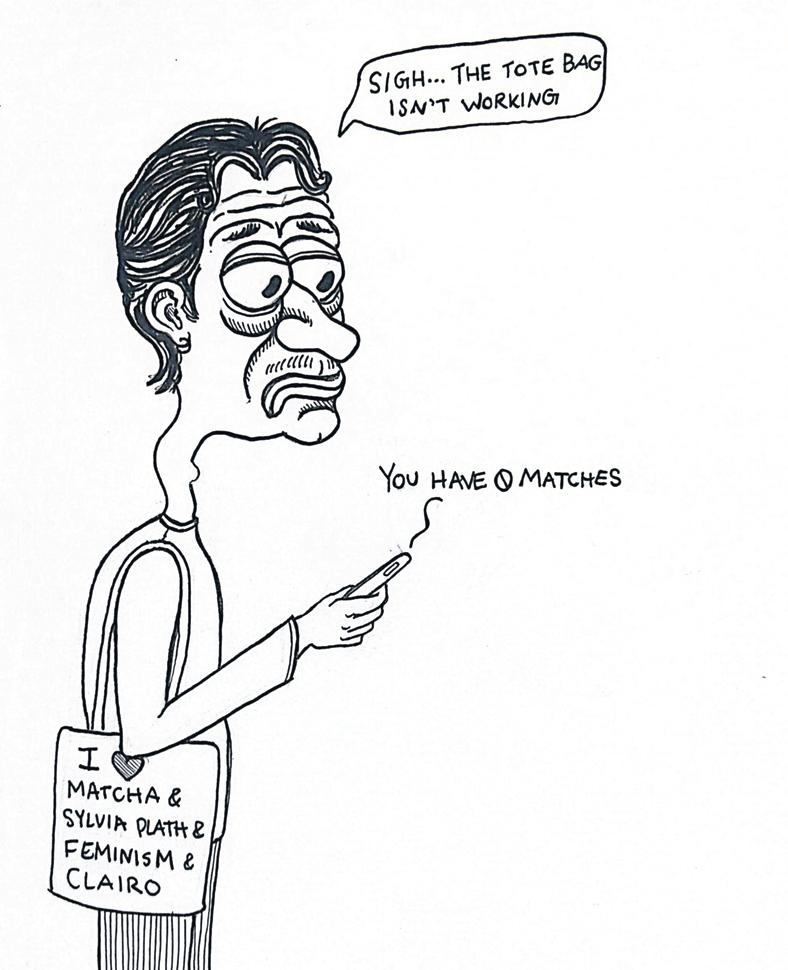 SIGH... THE TOTE BAG
ISN'T WORKING
YOU HAVE 0 MATCHES
I ♥
MATCHA &
SYLVIA PLATH &
FEMINISM &
CLAIRO